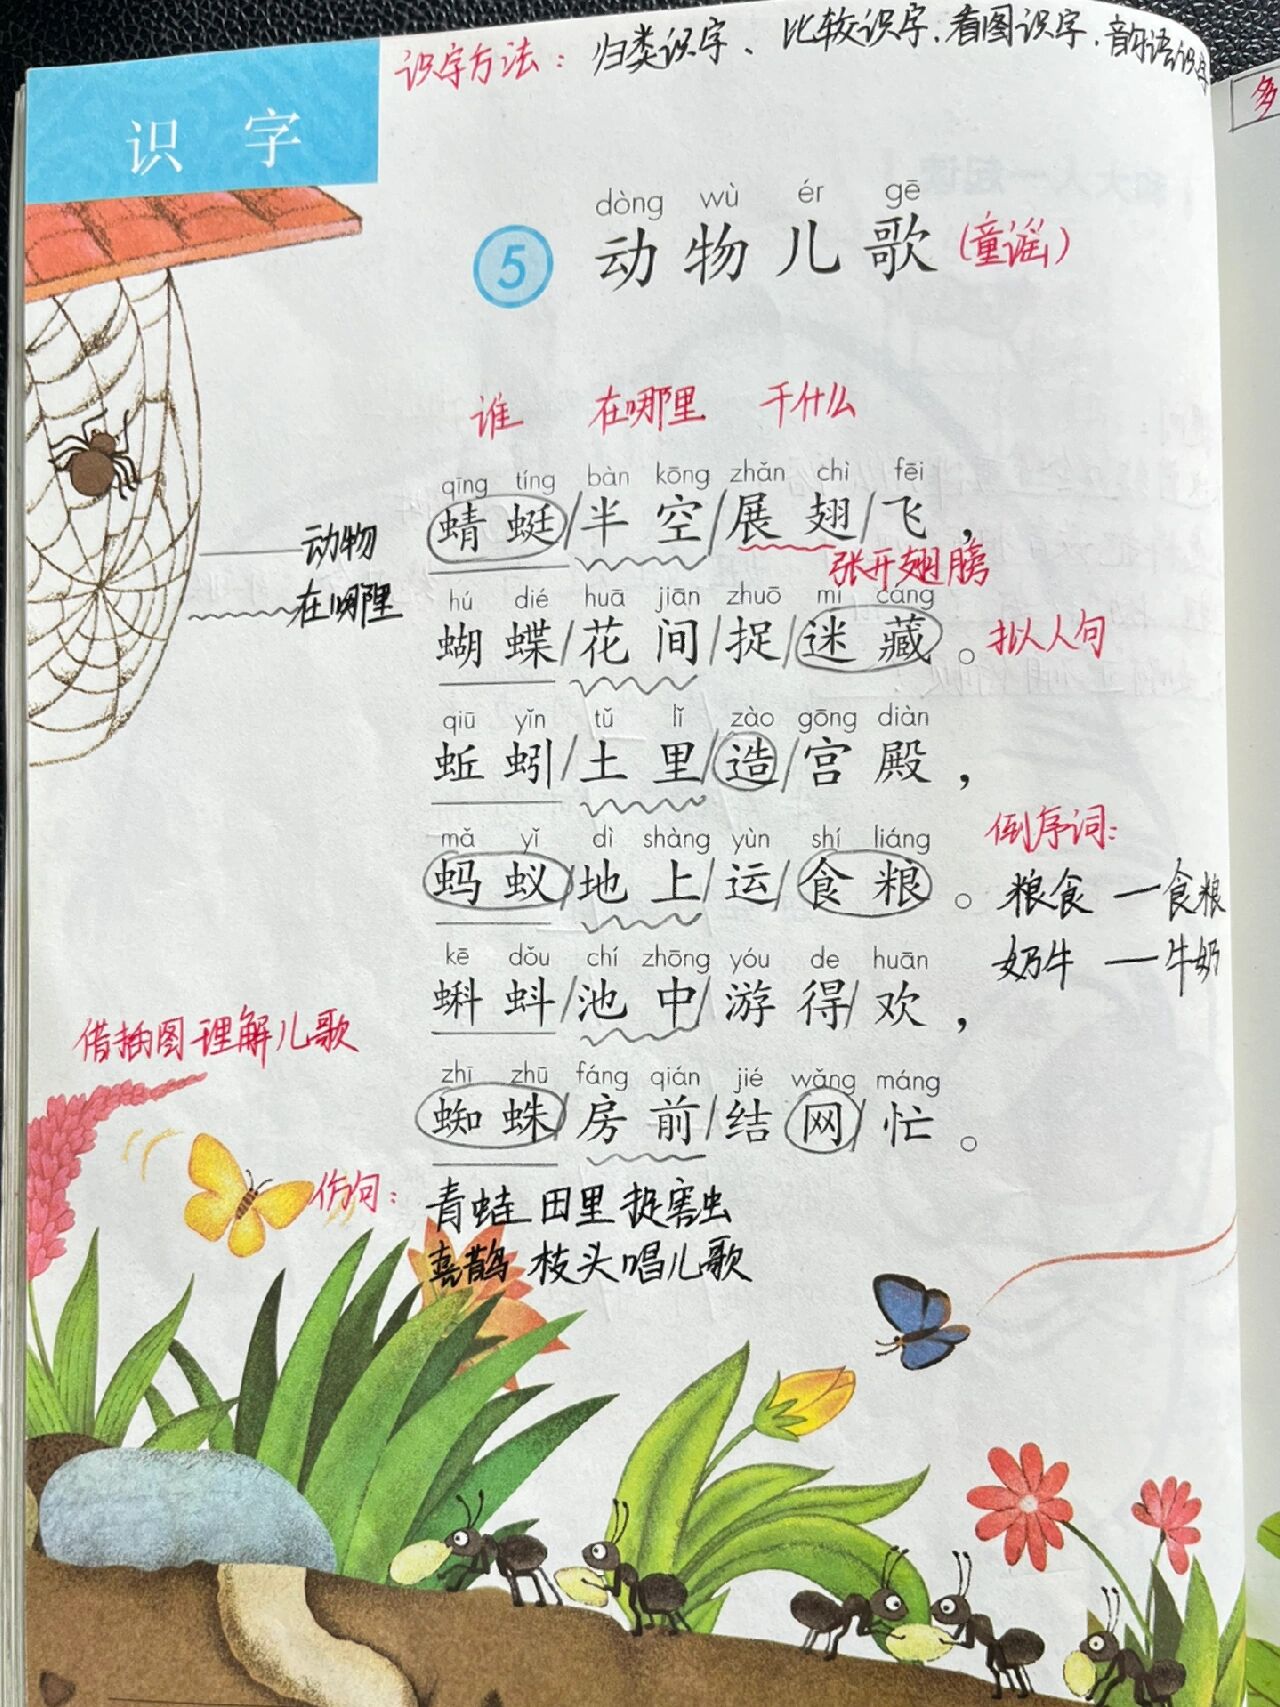 识字方法：归类识字、比较识字、看图识字、韵语识字
多
识 字
dòng wù ér gē
5 动物儿歌 （童谣）
谁 在哪里 干什么
qīng tíng bàn kōng zhǎn chì fēi
蜻蜓/半空/展翅/飞，
动物
张开翅膀
在哪里
hú dié huā jiān zhuō mí cáng
蝴蝶/花间/捉/迷藏。
拟人句
qiū yǐn tǔ lǐ zào gōng diàn
蚯蚓/土里/造/宫殿，
倒序词：
mǎ yǐ dì shàng yùn shí liáng
蚂蚁/地上/运/食粮。
粮食 — 食粮
奶牛 — 牛奶
kē dǒu chí zhōng yóu de huān
蝌蚪/池中/游得/欢，
借插图理解儿歌
zhī zhū fáng qián jié wǎng máng
蜘蛛/房前/结网/忙。
仿句：
青蛙 田里 捉害虫
喜鹊 枝头 唱儿歌